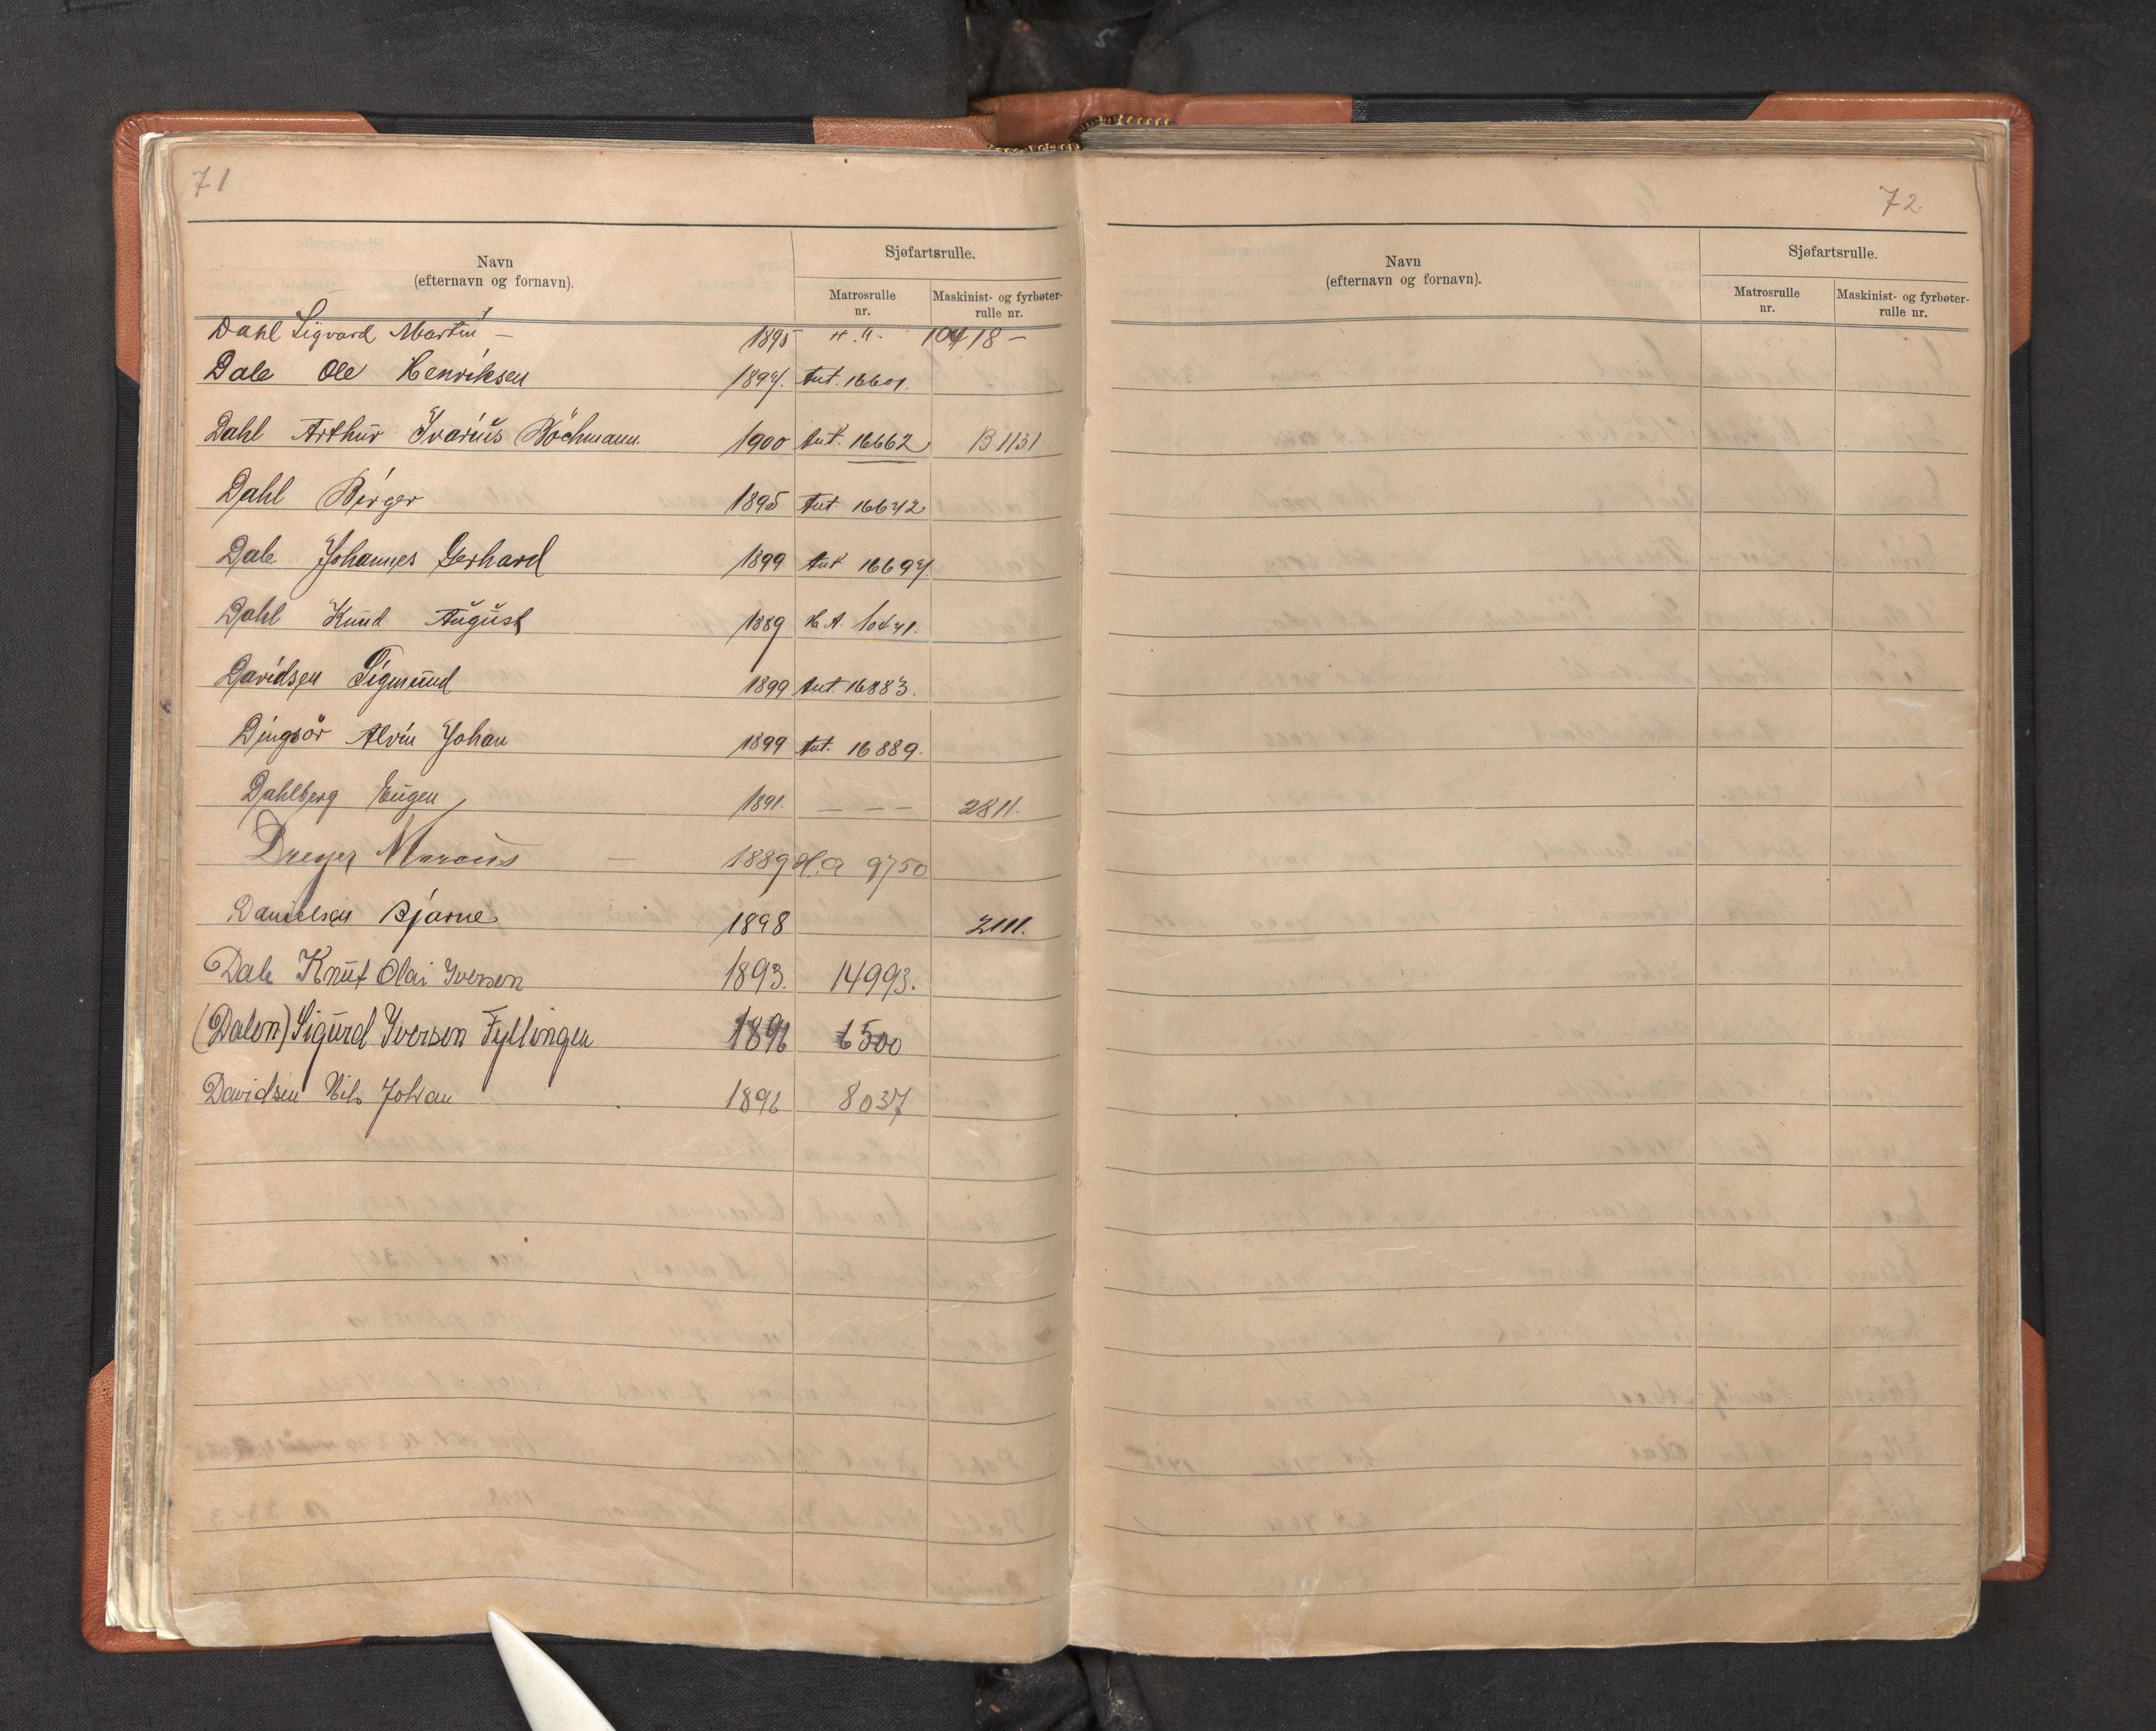 71
Navn
(efternavn og fornavn).
Sjøfartsrulle.
Matrosrulle
nr.
Maskinist- og fyrbøter-
rulle nr.
Dahl Sigvard Martin — 1895 " . " 10418 —
Dale Ole Henriksen 1894. Aut. 16601.
Dahl Arthur Ivarius Böchmann 1900 Aut. 16662 B 1131
Dahl Birger 1895 Aut. 16642
Dale Johannes Gerhard 1899 Aut 16694.
Dahl Knud August 1889 H. A. 10441.
Davidsen Sigmund 1899 Aut. 16883.
Dingsör Alvin Johan 1899 Aut. 16889.
Dahlberg Eugen 1891. — — — 2811.
Dreyer Marcus — 1889 H. A 9750
Danielsen Bjarne 1898 2111.
Dale Knut Olai Iversen 1893. 14993.
(Dalen) Sigurd Iversen Fyllingen 1896 6500
Davidsen Nils Johan 1896 8037
72
Navn
(efternavn og fornavn).
Sjøfartsrulle.
Matrosrulle
nr.
Maskinist- og fyrbøter-
rulle nr.